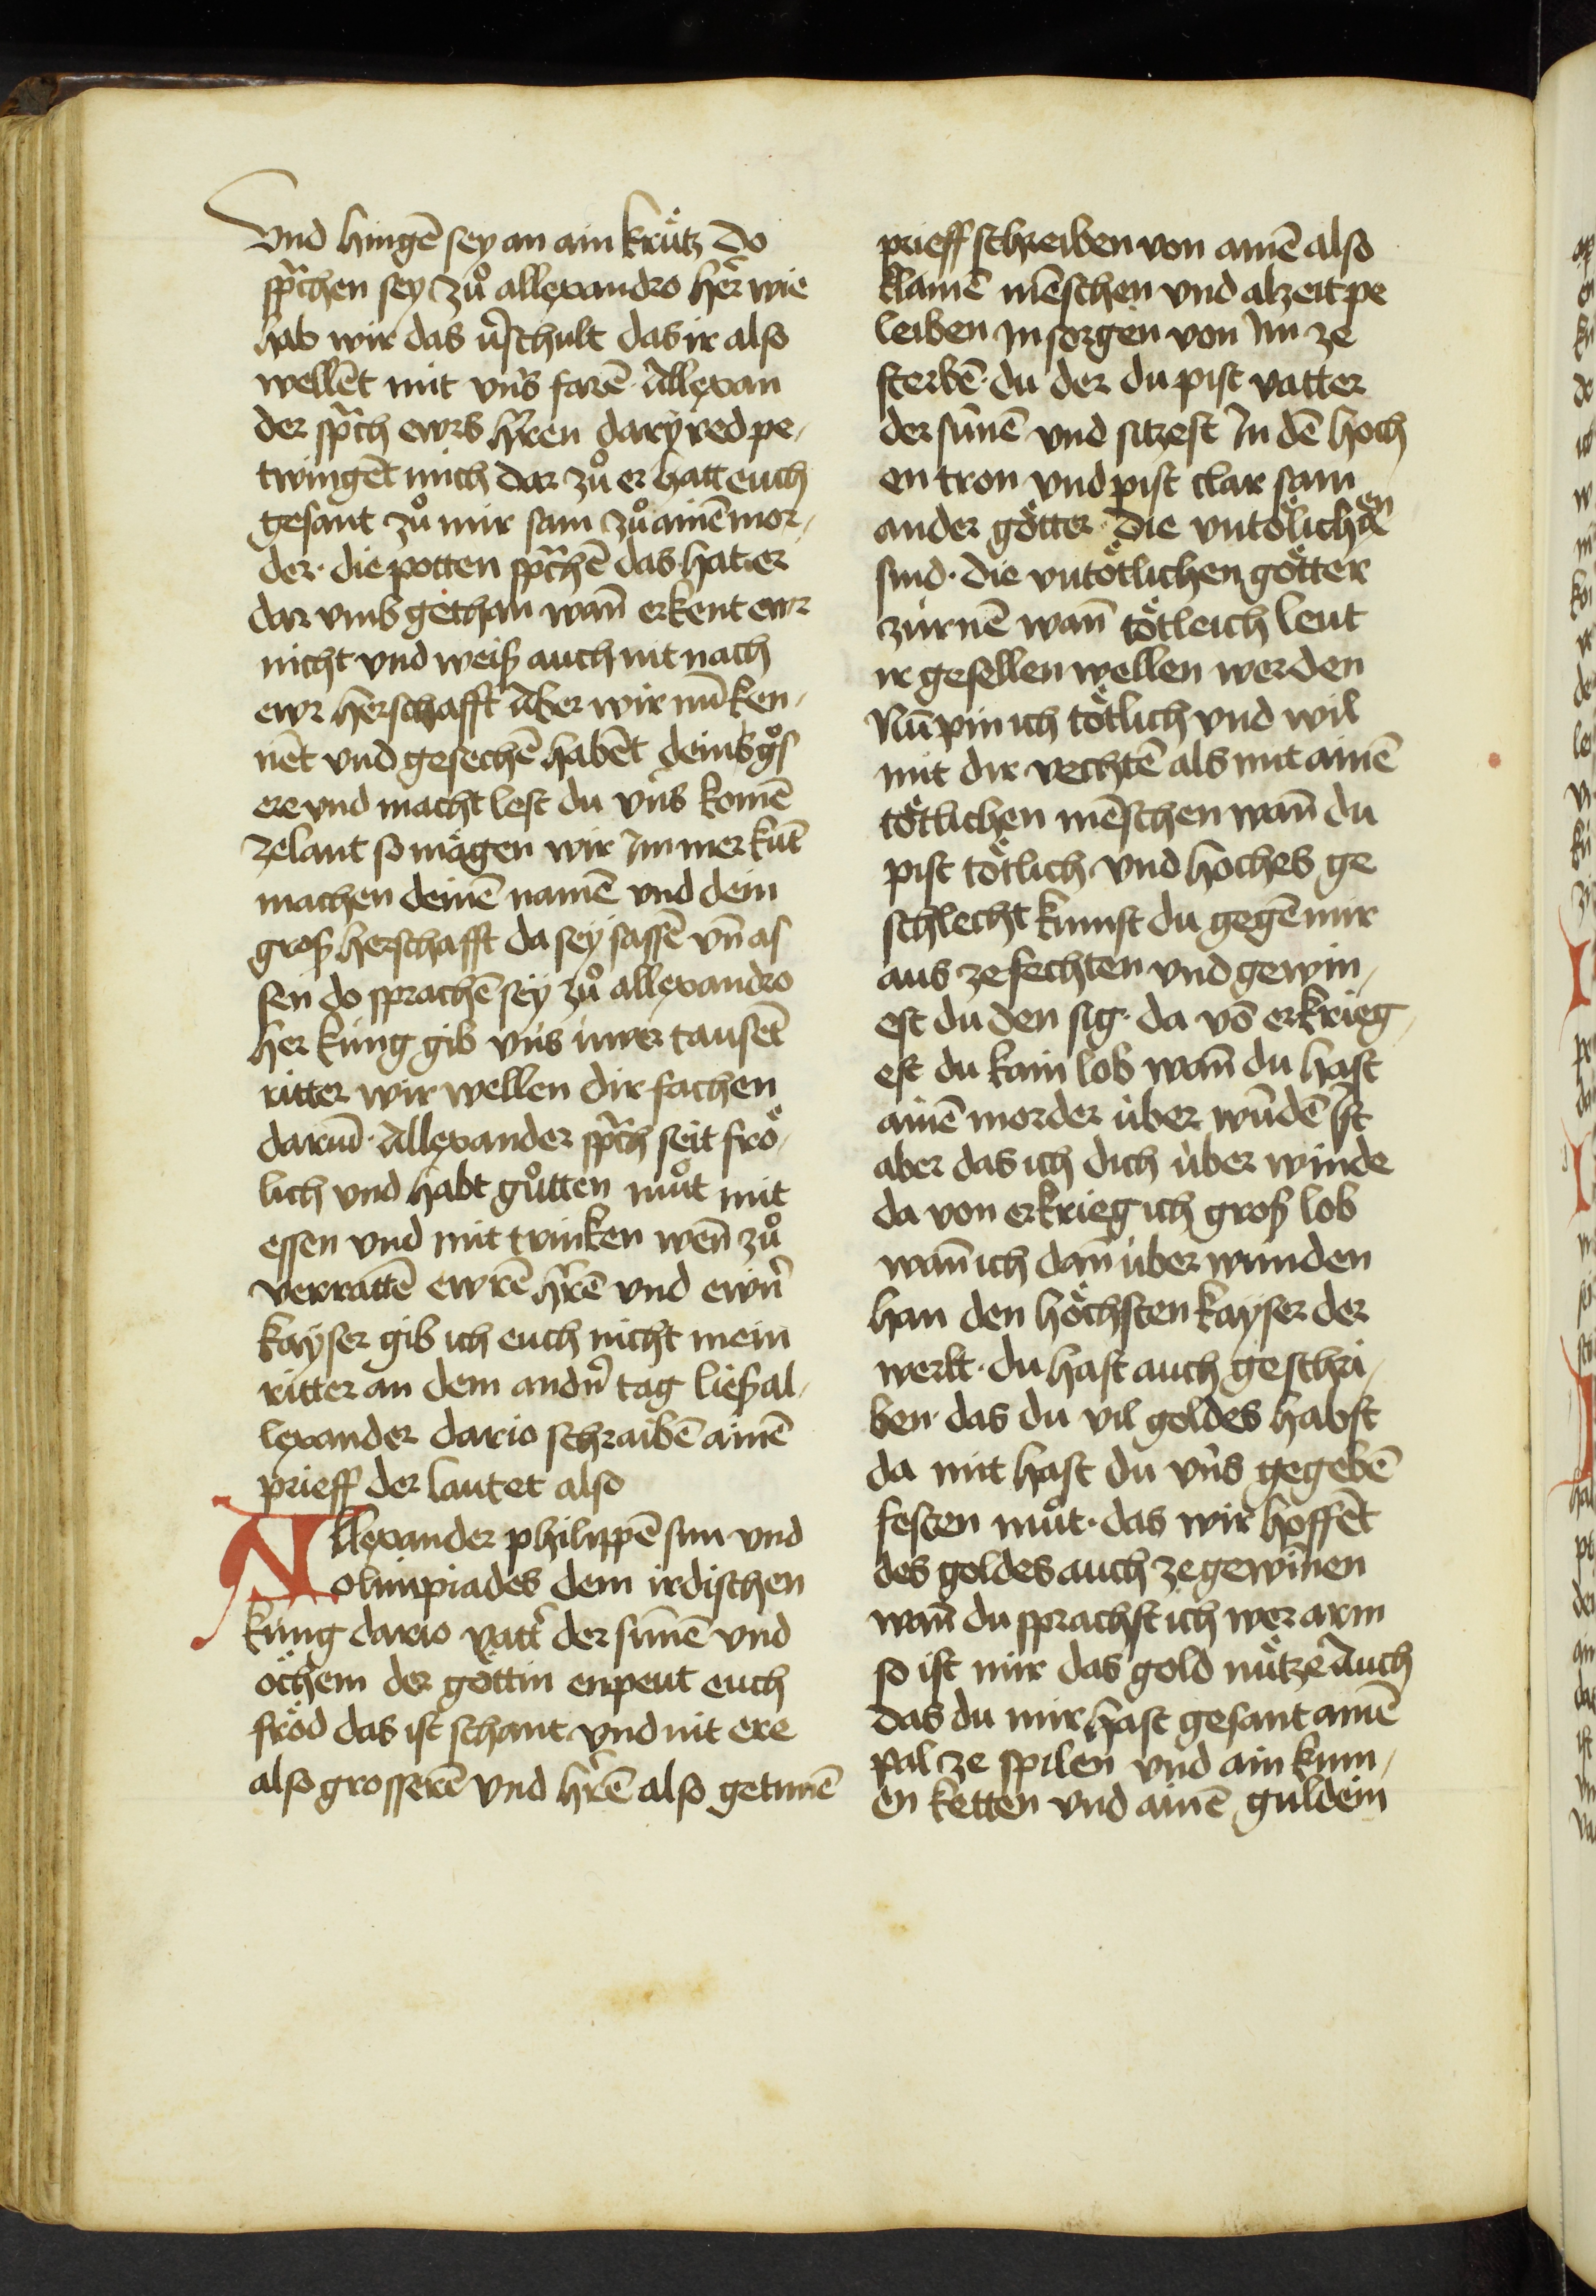 Vnd hingē sey an ain krütz do
sp̄chen sey zuͦ allexandro her̄ wie
hab wir das v̄schult das ir also
wellēt mit vns farē. Allexan
der sp̄ch ewrs h̄ren dary red pe-
twingēt mich dar zuͦ er hatt euch
gesant zuͦ mir sam zuͦ ainē mor-
der. die potten sp̄chē das hat er
dar vmb gethan wan̄ er kent ewr
nicht vnd weiß auch nit nach
ewr herschafft Aber wir nu̅ ken-
nēt vnd gesechē habēt deins gͦs
ere vnd macht lest du vns komē
ze lant so mägen wir Im̄mer kūt
machen deinē namē vnd dein
groß herschafft da sey sassē vn̄ as
sen do sprachē sey zuͦ allexandro
her küng gib vns úwer tausēt
ritter wir wellen dir fachen
darum̄. Allexander sp̄ch seit frö-
lich vnd habt guͦtten muͦt mit
essen vnd mit trinken wen̄ zuͦ
verrattē ewrē h̄rē vnd ewrn̄
kayser gib ich euch nicht mein
ritter an dem andn̄ tag ließ al-
lexander dario schraibē ainē
prieff der lautet also
Allexander philippē sun vnd
olimpiades dem irdischen
küng dario vatt̄ der sunnē vnd
öchem der göttin enpeut euch
fröd das ist schant vnd nit ere
also grosserē vnd h̄rē also getunē
prieff schreiben von ainē also
klainē mēschen vnd alzeit pe
leiben In sorgen von Im ze
sterbē. du der du pist vatter
der sunnē vnd sitzest In dē hoch
en tron vnd pist clar sam
ander götter. die vntölichen
sind. die vntötlichen götter
zürnē wan̄ tötleich leut
ir gesellen wellen werden
Nu̅ pin ich tötlich vnd wil
mit dir vechtē als mit ainē
tötlichen mēschen wan̄ du
pist tötlich vnd hoches ge
schlecht kumst du gegē mir
aus ze fechten vnd gewin-
est du den sig. da vō erkrieg-
est du kain lob wan̄ du hast
ainē morder über wu̅dē Ist
aber das ich dich über winde
da von erkrieg ich groß lob
wan̄ ich dan̄ über wunden
han den höchsten kayser der
werlt. du hast auch geschri-
ben das du vil goldes habst
da mit hast du vns gegebē
festen muͦt. das wir hoffēt
des goldes auch ze gewinen
wan̄ du sprachst ich wer arm
so ist mir das gold nütze Auch
das du mir hast gesant ainē
pal ze spilen vnd ain krum-
en ketten vnd ainē guldein